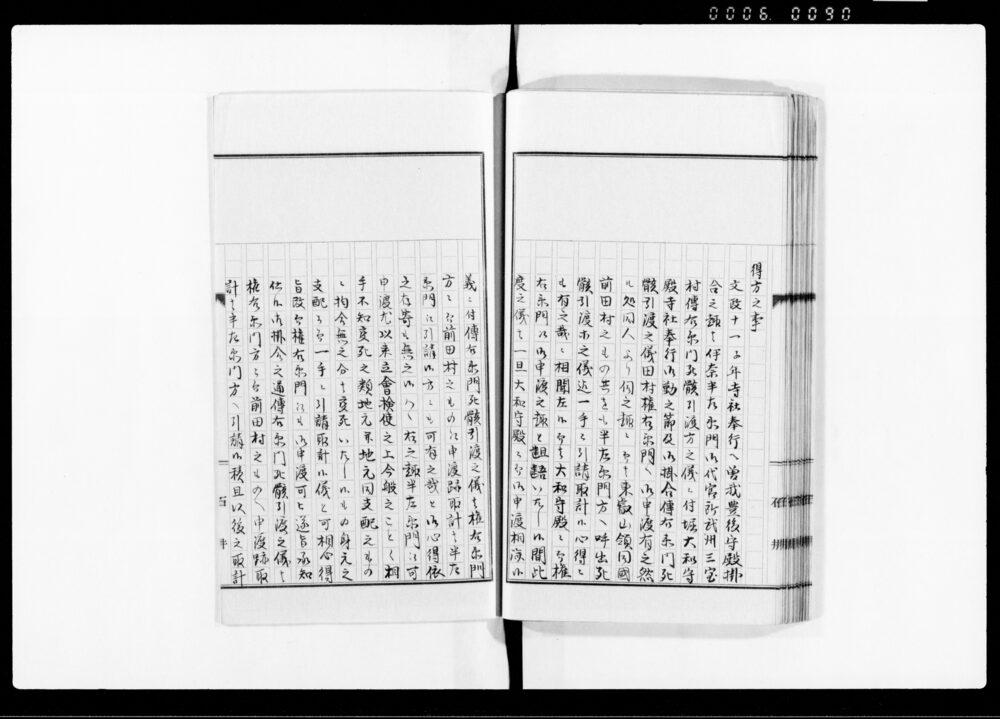 0006. 0090
得方之事
文政十一子年寺社奉行へ曽我豊後守殿掛
合之趣ニ伊奈半左衛門御代官所武州三室
村傳右衛門死骸引渡方之儀ニ付堀大和守
殿寺社奉行御勤之節及御掛合傳右衛門死
骸引渡之儀田村権右衛門へ御申渡有之然
ル処同人より伺之趣ニ而者東叡山領同國
前田村之もの共をも半左衛門方へ呼出死
骸引渡等之儀近一手ニ引請取計候心得ニ
も有之哉ニ相聞左候而者大和守殿ニ而権
右衛門江御申渡之趣と齟齬いたし候間此
度之儀者一旦大和守殿ニ而御申渡相済候
義ニ付傳右衛門死骸引渡之儀者権右衛門
方ニ而前田村之もの江申渡跡取計者半左
衛門江引請候方ニも可有之哉と御心得依
之存寄も無之候ハヽ右之趣半左衛門江可
申渡尤以来立會検使之上今般之ことく相
手不知変死之類地元并地元同支配之もの
ニ拘合無之分者変死いたし候もの身元之
支配ニ而一手ニ引請取計候儀と可相心得
旨改而権右衛門江も御申渡可被遂旨承知
仕候御掛合之通傳右衛門死骸引渡之儀者
権右衛門方ニ而前田村之ものへ申渡跡取
計者半左衛門方へ引請候積且以後之取計